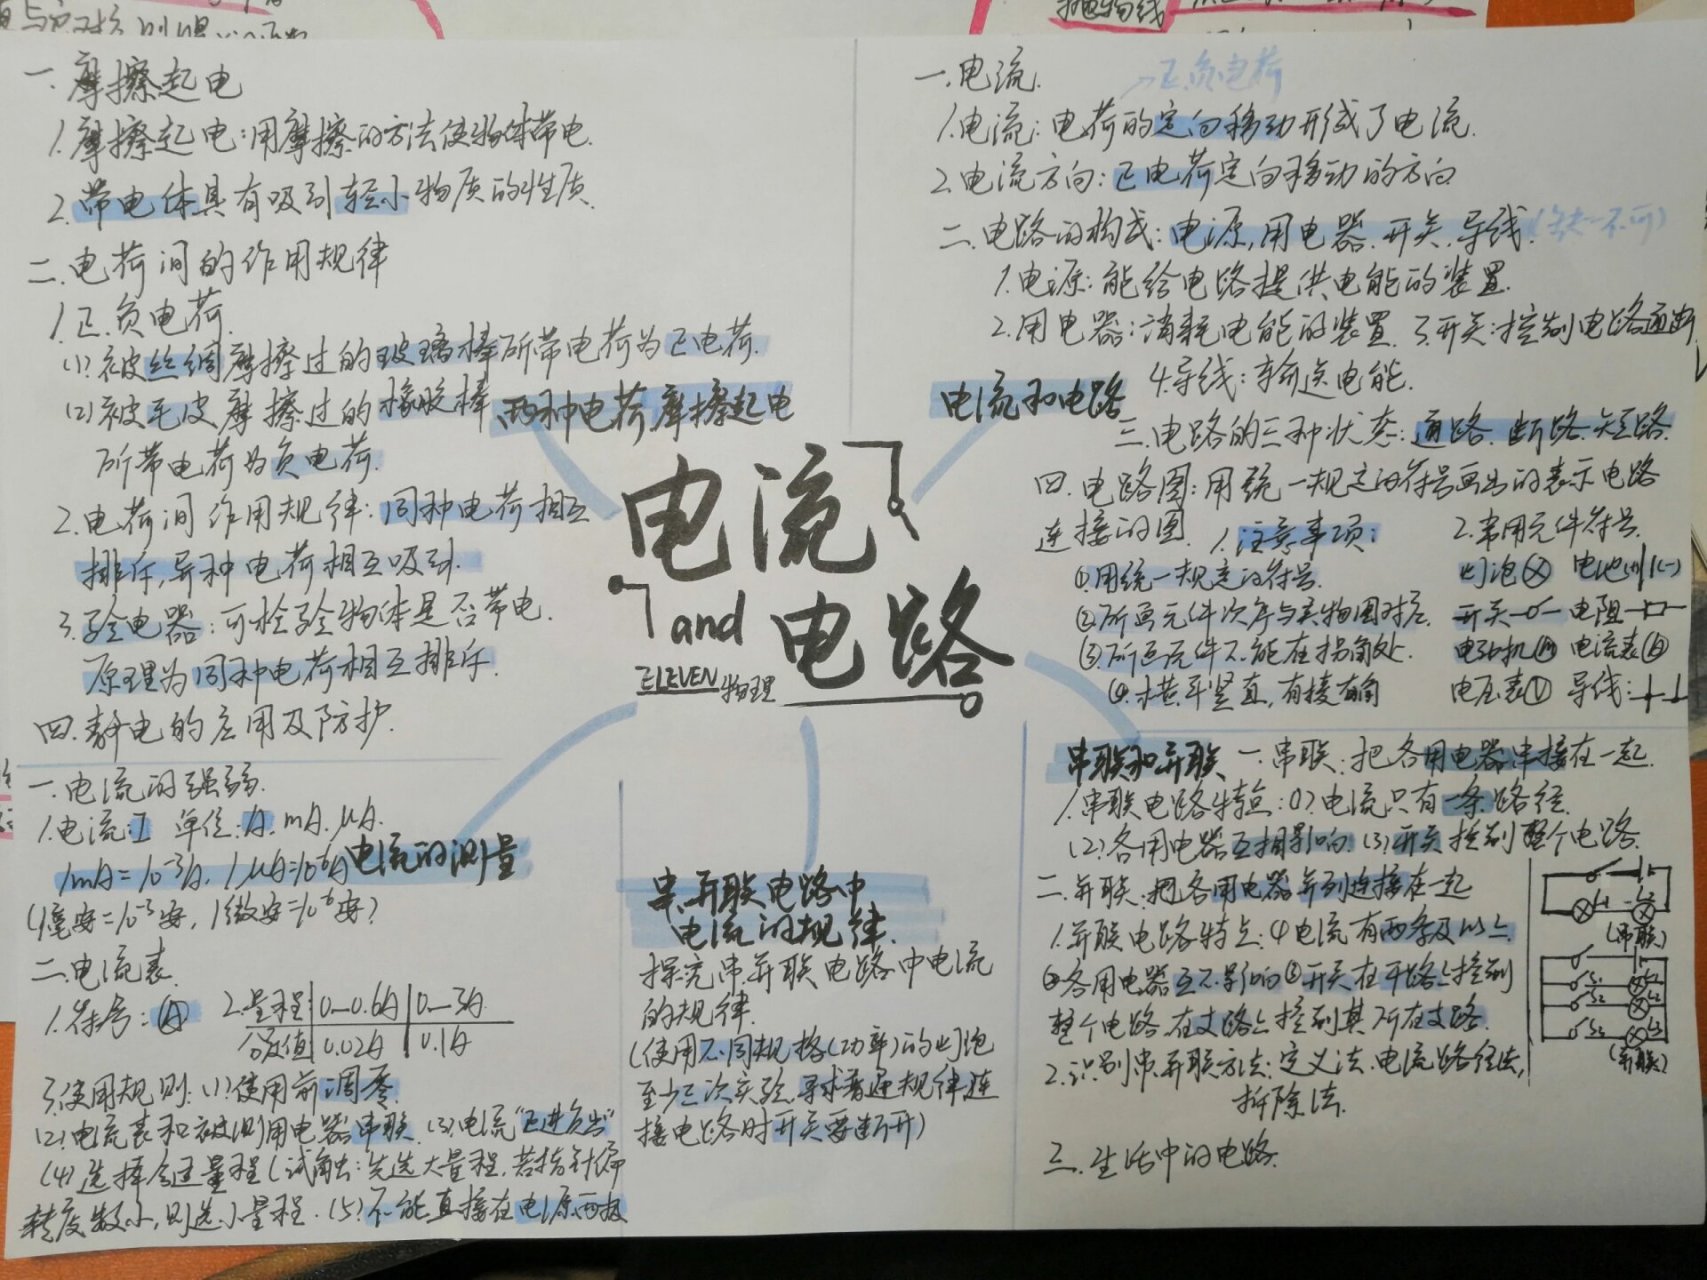 一.摩擦起电
1.摩擦起电:用摩擦的方法使物体带电.
2.带电体具有吸引轻小物质的性质.
二.电荷间的作用规律
1.正.负电荷.
(1).被丝绸摩擦过的玻璃棒所带电荷为正电荷.
(2)被毛皮摩擦过的橡胶棒
所带电荷为负电荷.
两种电荷摩擦起电
2.电荷间作用规律:同种电荷相互
排斥,异种电荷相互吸引.
3.验电器:可检验物体是否带电.
原理为同种电荷相互排斥.
四.静电的应用及防护.
一.电流.
→正.负电荷
1.电流:电荷的定向移动形成了电流.
2.电流方向:正电荷定向移动的方向
二.电路的构成:电源,用电器.开关.导线.(缺一不可)
1.电源:能给电路提供电能的装置.
2.用电器:消耗电能的装置.3.开关:控制电路通断
4.导线:输送电能.
电流和电路
三.电路的三种状态:通路.断路.短路.
四.电路图:用统一规定的符号画出的表示电路
连接的图. 1.注意事项:
①用统一规定的符号.
②所画元件次序与实物图对应
③所画元件不能在拐角处.
④.横平竖直,有棱有角
2.常用元件符号.
灯泡 电池(+) (-)
开关 电阻
电动机M 电流表A
电压表V 导线:
电流
and
电路
ELEVEN物理
一.电流的强弱.
1.电流:I 单位:A.mA.μA.
1mA=10⁻³A,1μA=10⁻⁶A
(1毫安=10⁻³安,1微安=10⁻⁶安)
电流的测量
二.电流表.
1.符号:A 2.量程 0—0.6A 0—3A.
分度值 0.02A 0.1A
3.使用规则:(1).使用前调零.
(2).电流表和被测用电器串联.(3).电流"正进负出"
(4).选择合适量程(试触:先选大量程.若指针偏
转度数小,则选小量程.(5).不能直接在电源两极
串.并联电路中
电流的规律.
探究串.并联电路中电流
的规律.
(使用不同规格(功率)的灯泡
至少三次实验.寻求普遍规律.连
接电路时开关要断开)
串联和并联 一.串联:把各用电器串接在一起.
1.串联电路特点:(1).电流只有一条路径.
(2).各用电器互相影响.(3).开关控制整个电路.
二.并联:把各用电器并列连接在一起
1.并联电路特点:①电流有两条及以上.
②各用电器互不影响③开关在干路上控制
整个电路.在支路上控制其所在支路.
2.识别串.并联方法:定义法.电流路径法,
拆除法.
三.生活中的电路.
L1 L2
(串联)
S1 L1
S2 L2
S3 L3
(并联)